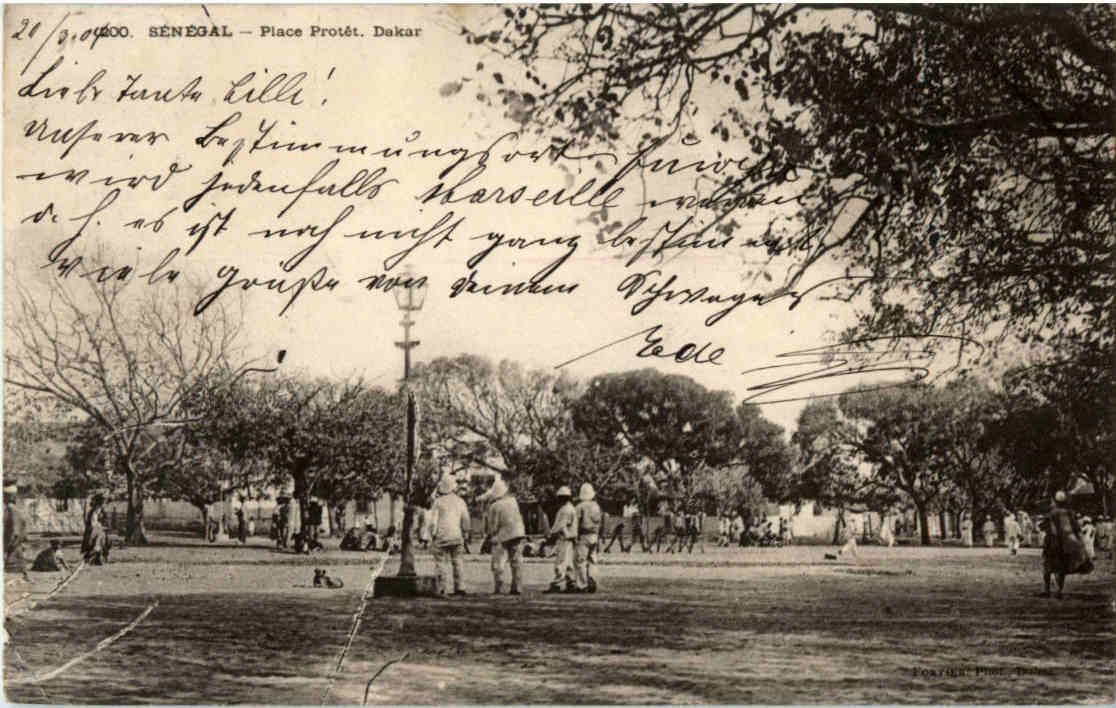 20/3.04
200. SÉNÉGAL — Place Protêt. Dakar
Liebe Tante Lilli!
Unserer Bestimmungsort
wird jedenfalls Marseille werden
d. h. es ist noch nicht ganz bestimmt
viele Grüße von Deinem Schwager
Ede
FORTIER. Phot., Dakar